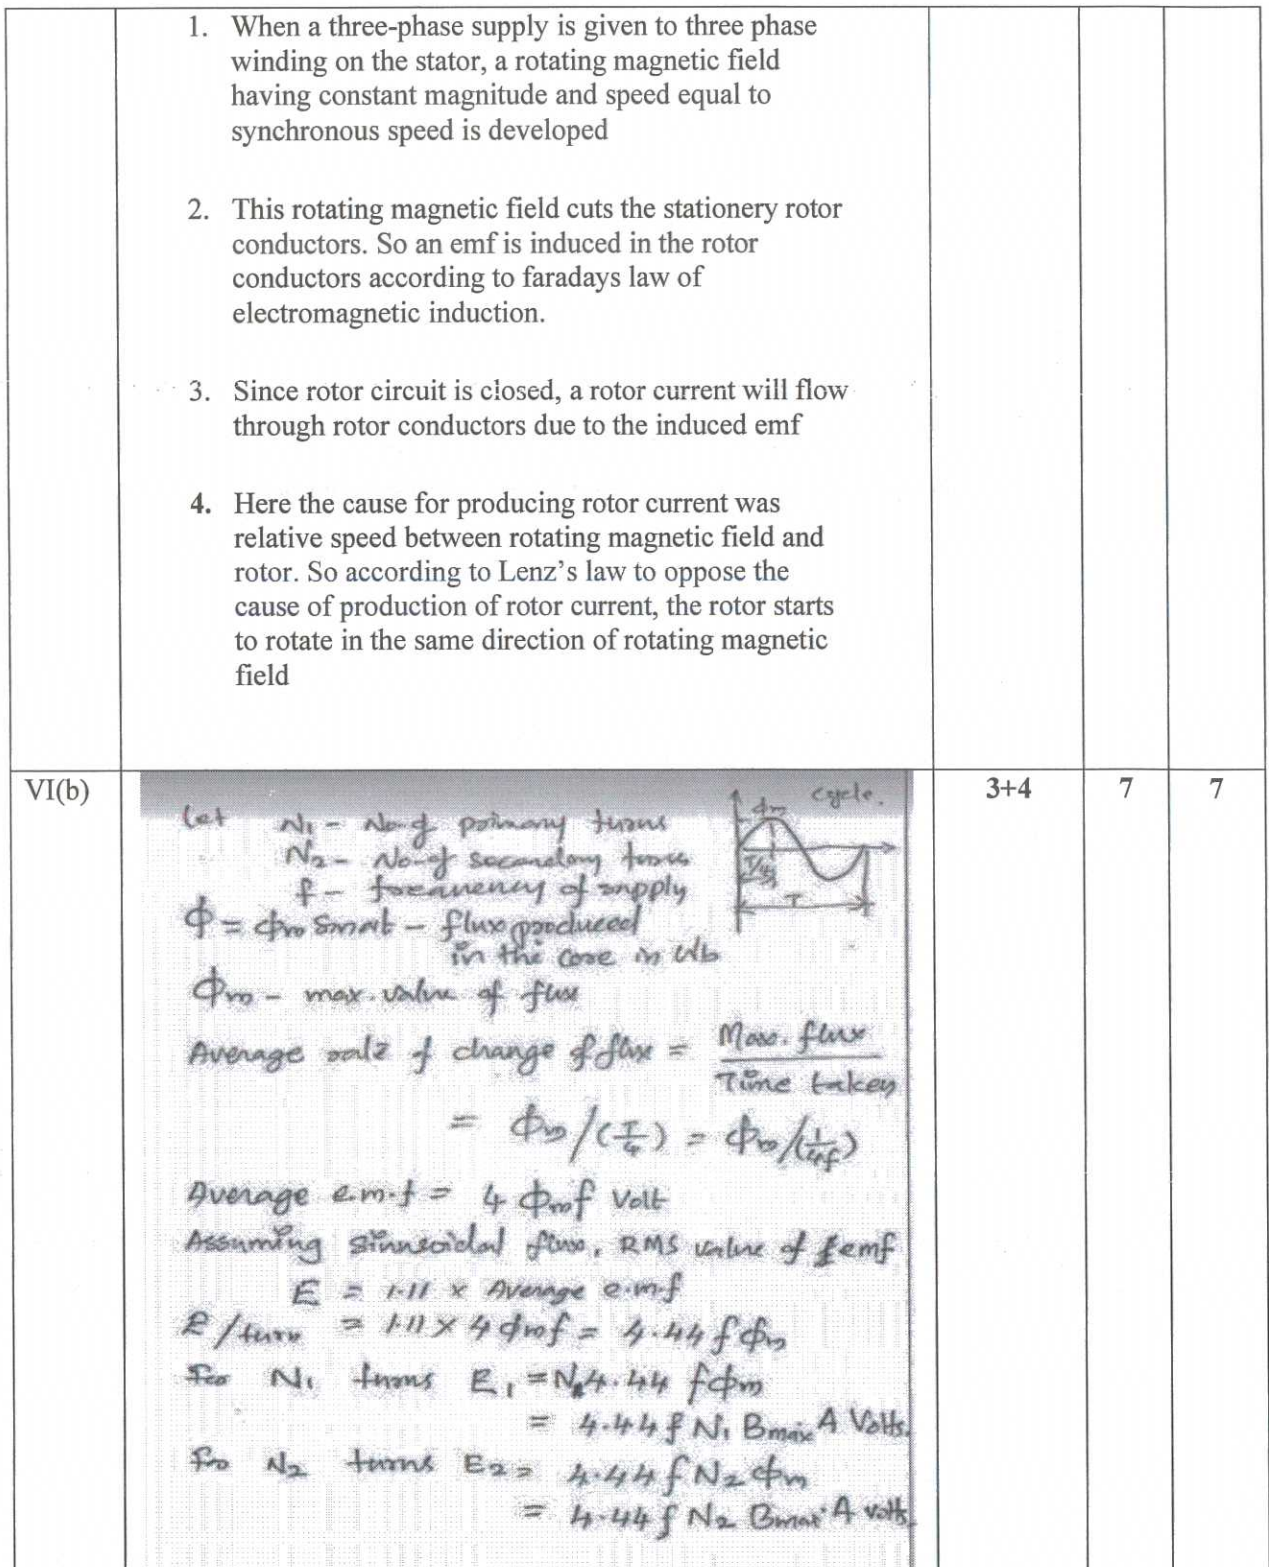 1. When a three-phase supply is given to three phase
winding on the stator, a rotating magnetic field
having constant magnitude and speed equal to
synchronous speed is developed
2. This rotating magnetic field cuts the stationery rotor
conductors. So an emf is induced in the rotor
conductors according to faradays law of
electromagnetic induction.
3. Since rotor circuit is closed, a rotor current will flow
through rotor conductors due to the induced emf
4. Here the cause for producing rotor current was
relative speed between rotating magnetic field and
rotor. So according to Lenz's law to oppose the
cause of production of rotor current, the rotor starts
to rotate in the same direction of rotating magnetic
field
VI(b) 3+4 7 7
cycle.
Let N₁ - No. of primary turns
N₂ - No. of secondary turns
f - frequency of supply
ϕm
T/4
T
Φ = ϕm Sinωt - flux produced
in the core in Wb
Φm - max. value of flux
Average rate of change of flux = Max. flux
Time taken
= Φm/(T/4) = Φm/(1/4f)
Average e.m.f = 4 Φmf Volt
Assuming sinusoidal flux, RMS value of emf
E = 1.11 x Average e.m.f
E/turn = 1.11 x 4 ϕmf = 4.44 fϕm
For N₁ turns E₁ = N₁4.44 fϕm
= 4.44 f N₁ Bmax A Volts.
For N₂ turns E₂ = 4.44 f N₂ ϕm
= 4.44 f N₂ Bmax. A volts.